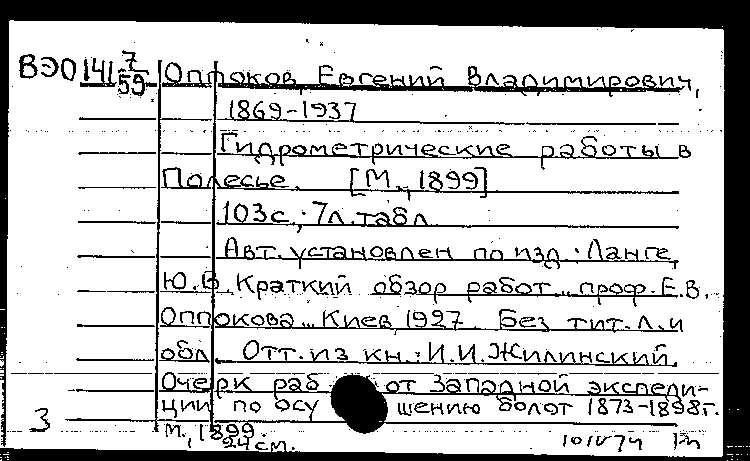 ВЭО 141 7/59 Оппоков, Евгений Владимирович,
1869-1937
Гидрометрические работы в
Полесье. [М., 1899]
103 с.; 7 л. табл.
Авт. установлен по изд.: Ланге,
Ю.В. Краткий обзор работ... проф. Е.В.
Оппокова... Киев, 1927. Без тит. л. и
обл. Отт. из кн.: И.И. Жилинский.
Очерк работ Западной экспеди-
ции по осушению болот 1873-1898 г.
З М., 1899.
24 см.